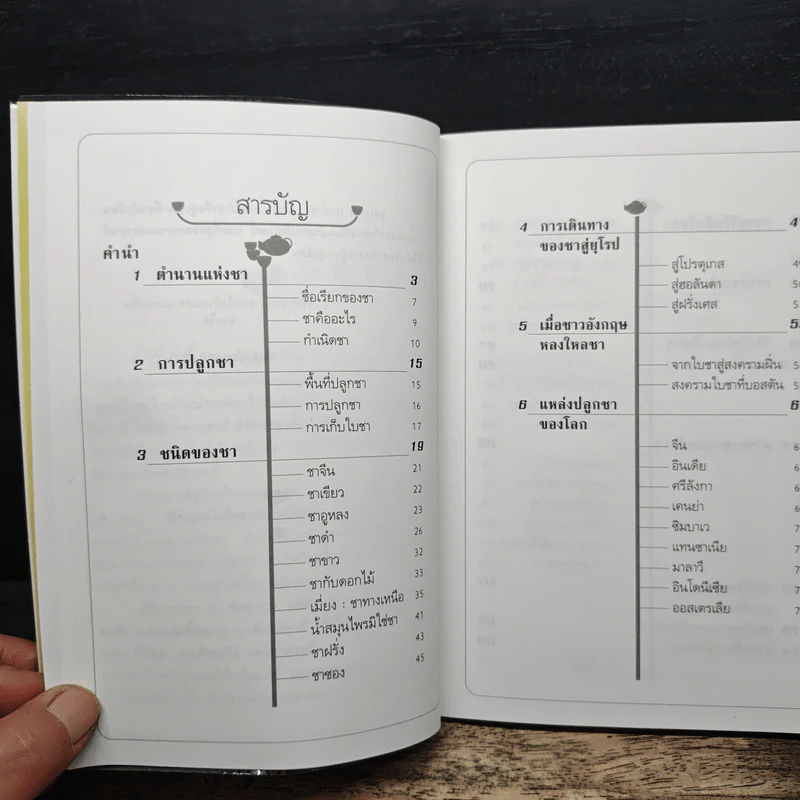 สารบัญ
คำนำ
1 ตำนานแห่งชา 3
ชื่อเรียกของชา 7
ชาคืออะไร 9
กำเนิดชา 10
2 การปลูกชา 15
พื้นที่ปลูกชา 15
การปลูกชา 16
การเก็บใบชา 17
3 ชนิดของชา 19
ชาจีน 21
ชาเขียว 22
ชาอูหลง 23
ชาดำ 26
ชาขาว 32
ชากับดอกไม้ 33
เมี่ยง : ชาทางเหนือ 35
น้ำสมุนไพรมิใช่ชา 41
ชาฝรั่ง 43
ชาซอง 45
4 การเดินทาง
ของชาสู่ยุโรป
สู่โปรตุเกส
สู่ฮอลันดา
สู่ฝรั่งเศส
5 เมื่อชาวอังกฤษ
หลงใหลชา
จากใบชาสู่สงครามฝิ่น
สงครามใบชาที่บอสตัน
6 แหล่งปลูกชา
ของโลก
จีน
อินเดีย
ศรีลังกา
เคนย่า
ซิมบาเว
แทนซาเนีย
มาลาวี
อินโดนีเซีย
ออสเตรเลีย